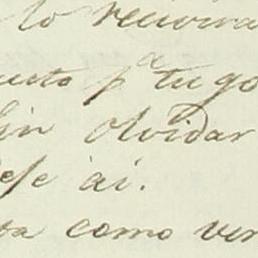 lo recivira
p.a tu go
sin olvidar
ese ai.
como ver